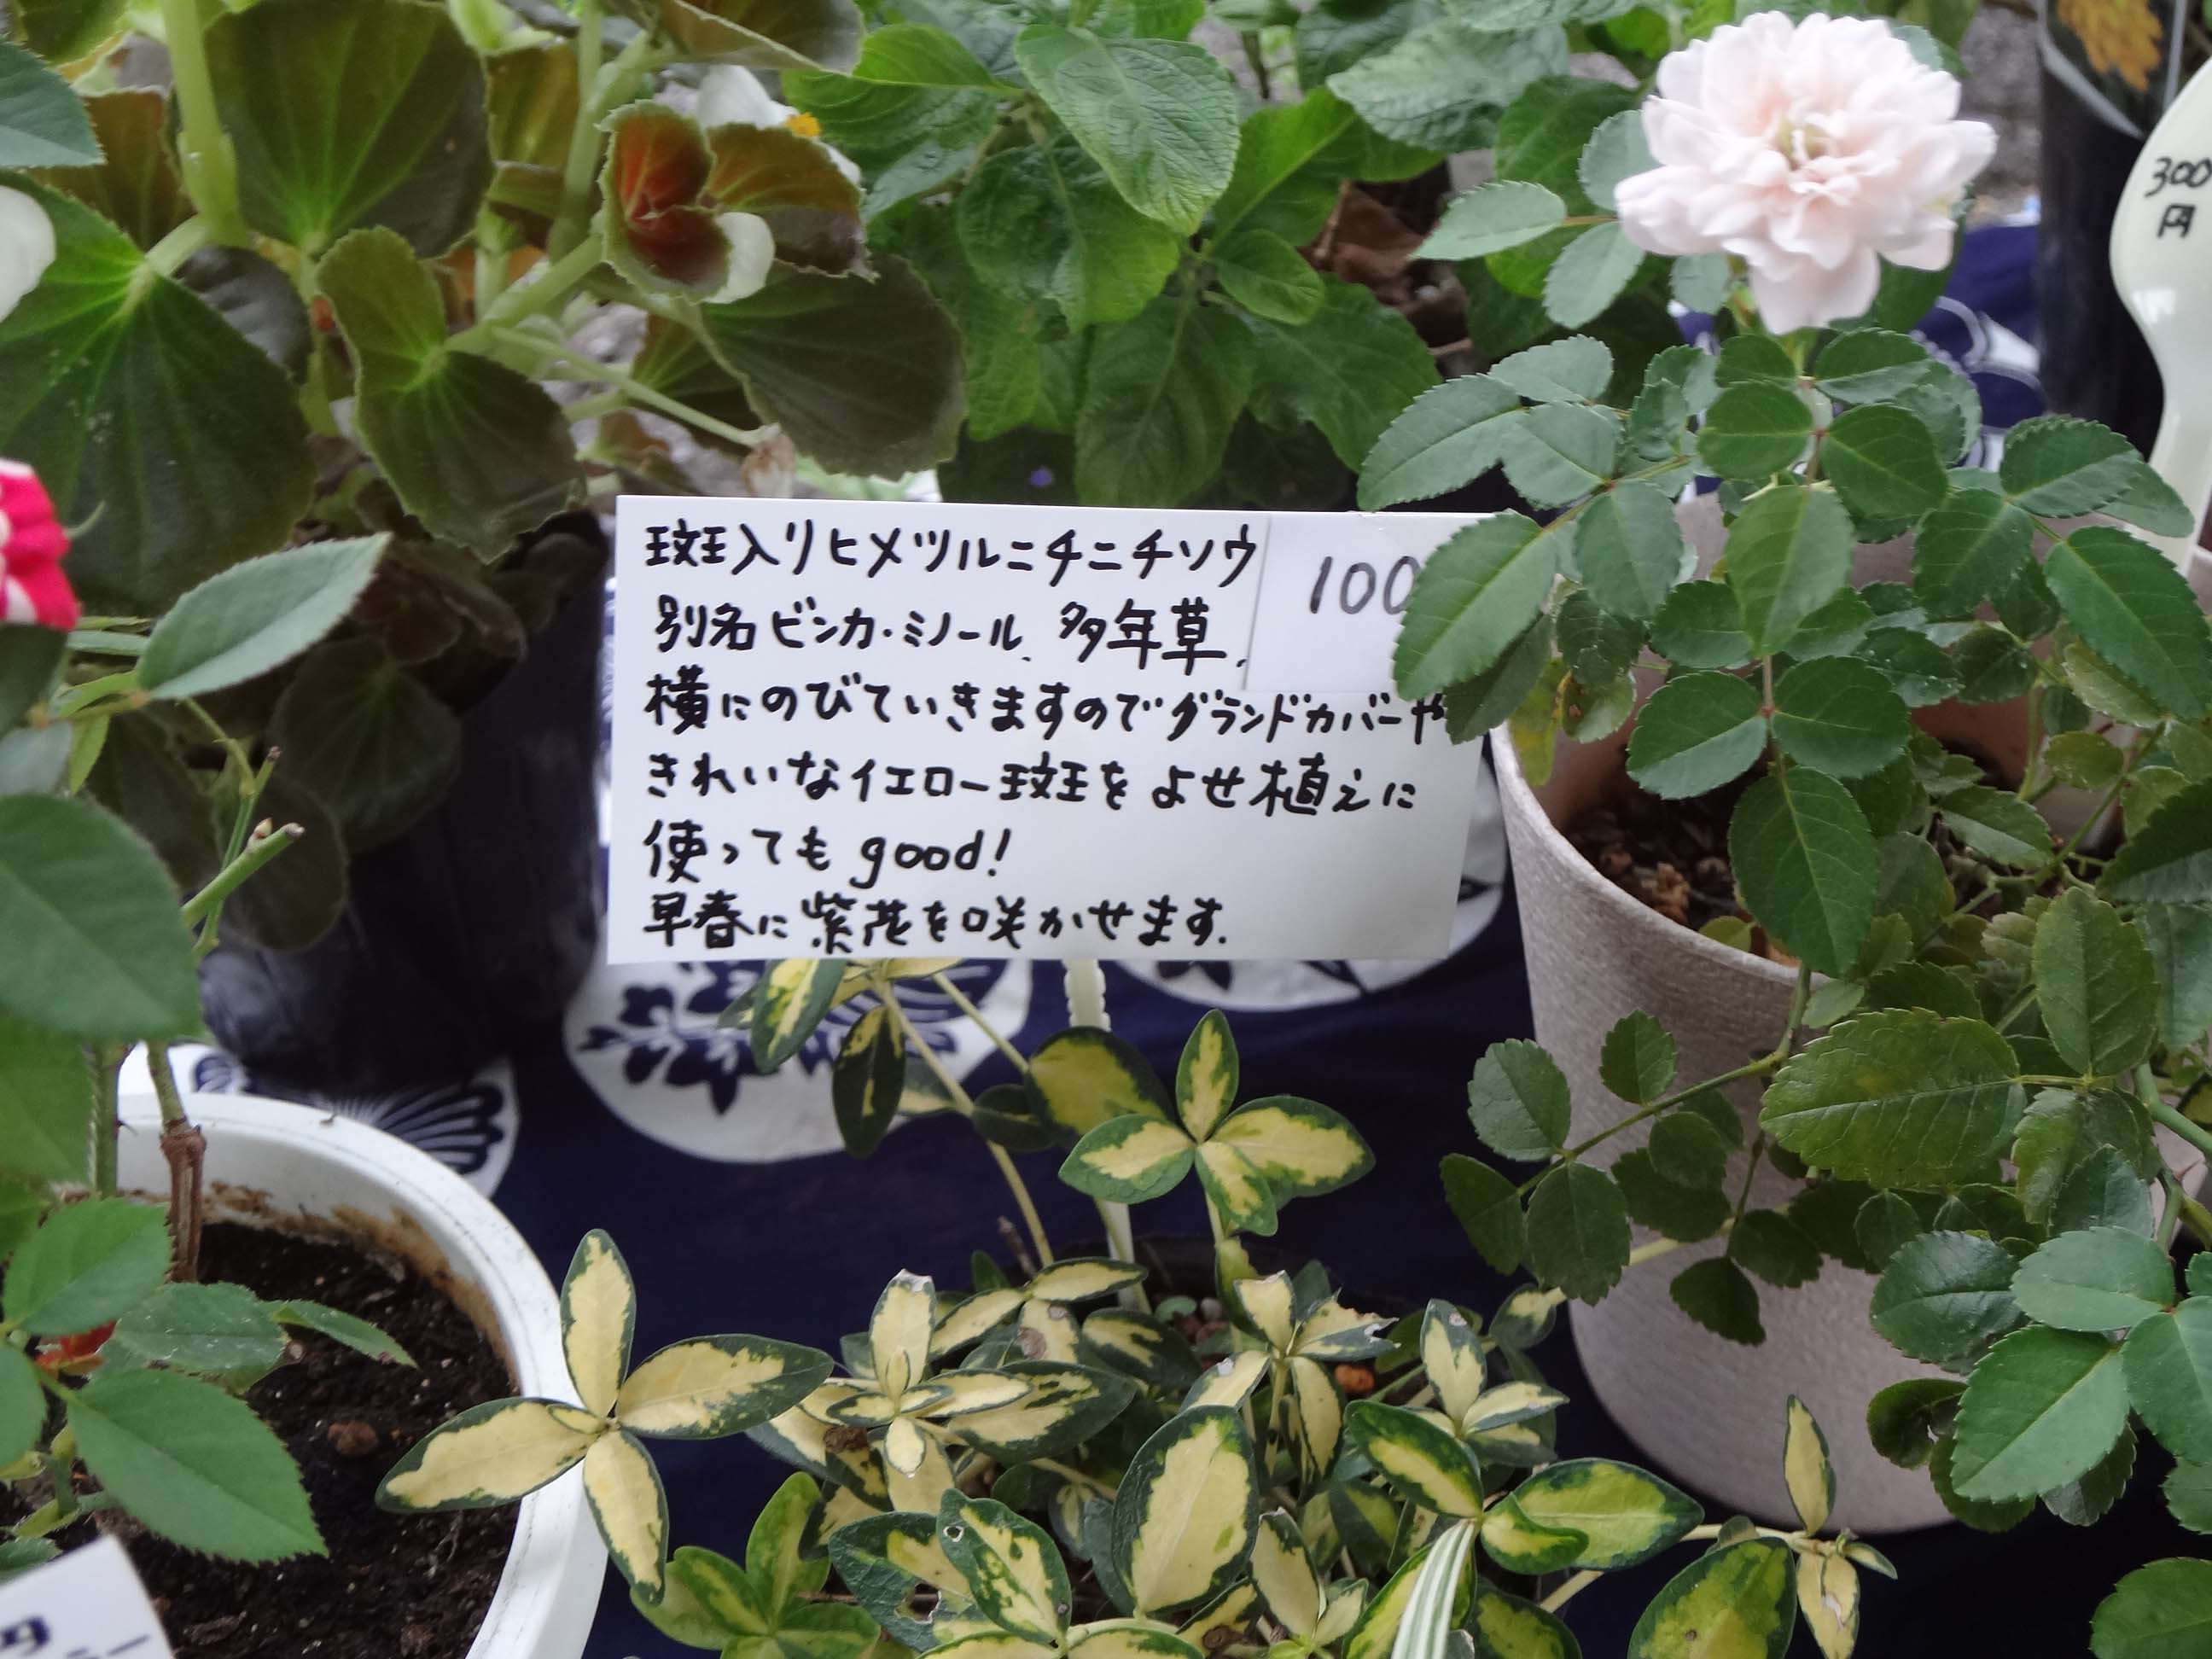 斑入りヒメツルニチニチソウ
100
別名ビンカ・ミノール、多年草、
横にのびていきますのでグランドカバーや
きれいなイエロー斑をよせ植えに
使ってもgood!
早春に紫花を咲かせます。
300
円